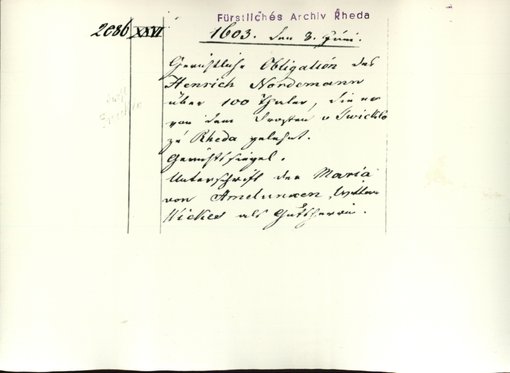 Fürstliches Archiv Rheda
2086 XXVI 1603. den 3. Juni.
Gerichtliche Obligation des
Henrich Nordemann
über 100 Thaler, die er
von dem Drosten v Twickel
zu Rheda gelehnt.
Gerichtssiegel.
Unterschrift der Maria
von Amelunxen, Wittwe
als Gutsherrin.